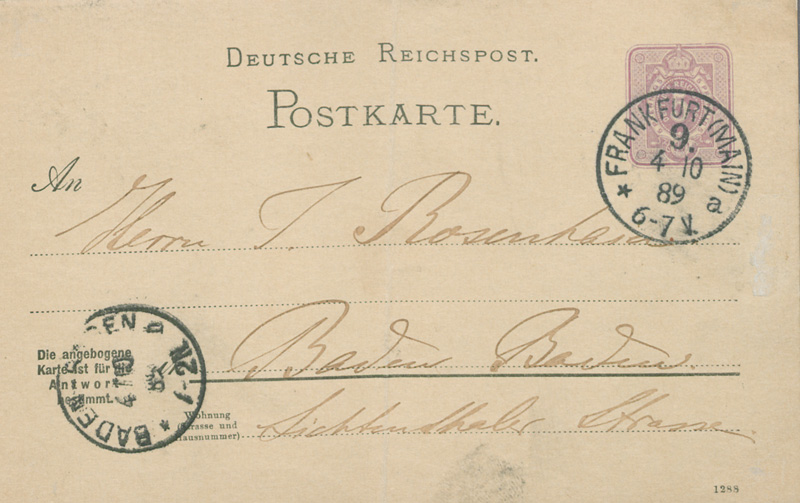 DEUTSCHE REICHSPOST.
POSTKARTE.
FRANKFURT (MAIN) a
9.
4 10
89
6-7 V.
An
Herrn J. Rosenhain
Die angebogene
Karte ist für
Antwort
bestimmt.
BADEN
4 10
89
1-2N
Baden Baden.
Wohnung
(Strasse und
Hausnummer)
Lichtenthaler Strasse
1288